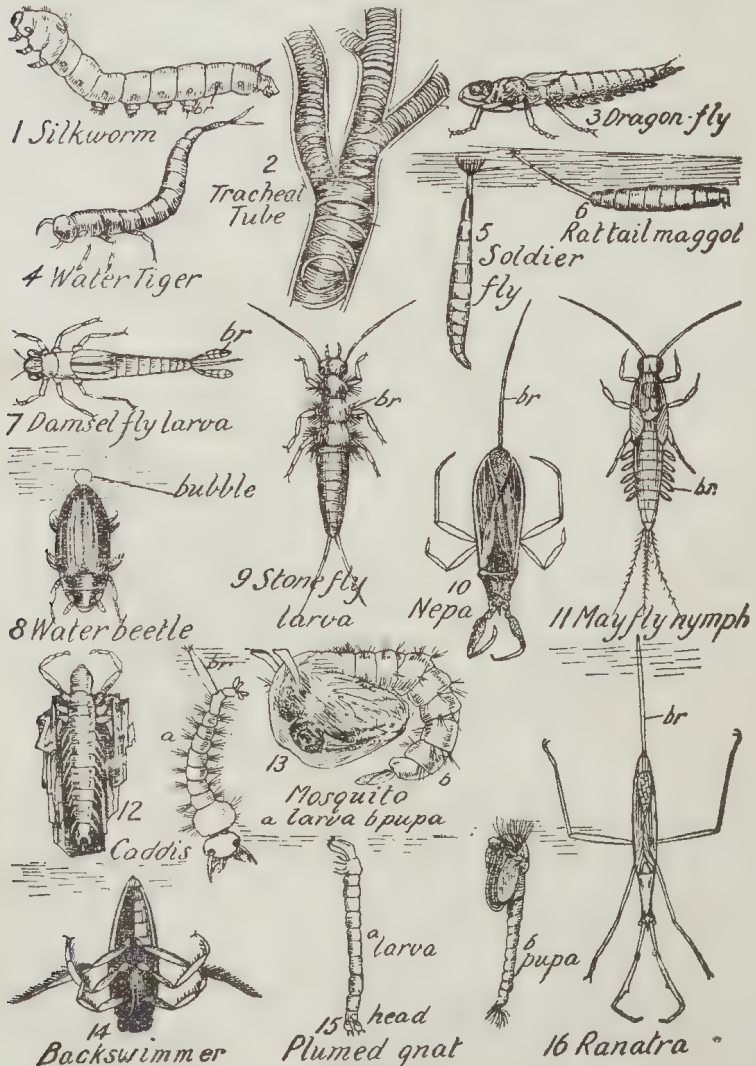 br
1 Silkworm
2
Tracheal
Tube
3 Dragon-fly
4 Water Tiger
5
Soldier
fly
6
Rat tail maggot
br
7 Damsel fly larva
bubble
8 Water beetle
br
9 Stone fly
larva
br
10
Nepa
br.
11 May fly nymph
12
Caddis
br
a
13
b
Mosquito
a larva b pupa
14
Backswimmer
a
larva
15 head
b
pupa
Plumed gnat
br
16 Ranatra